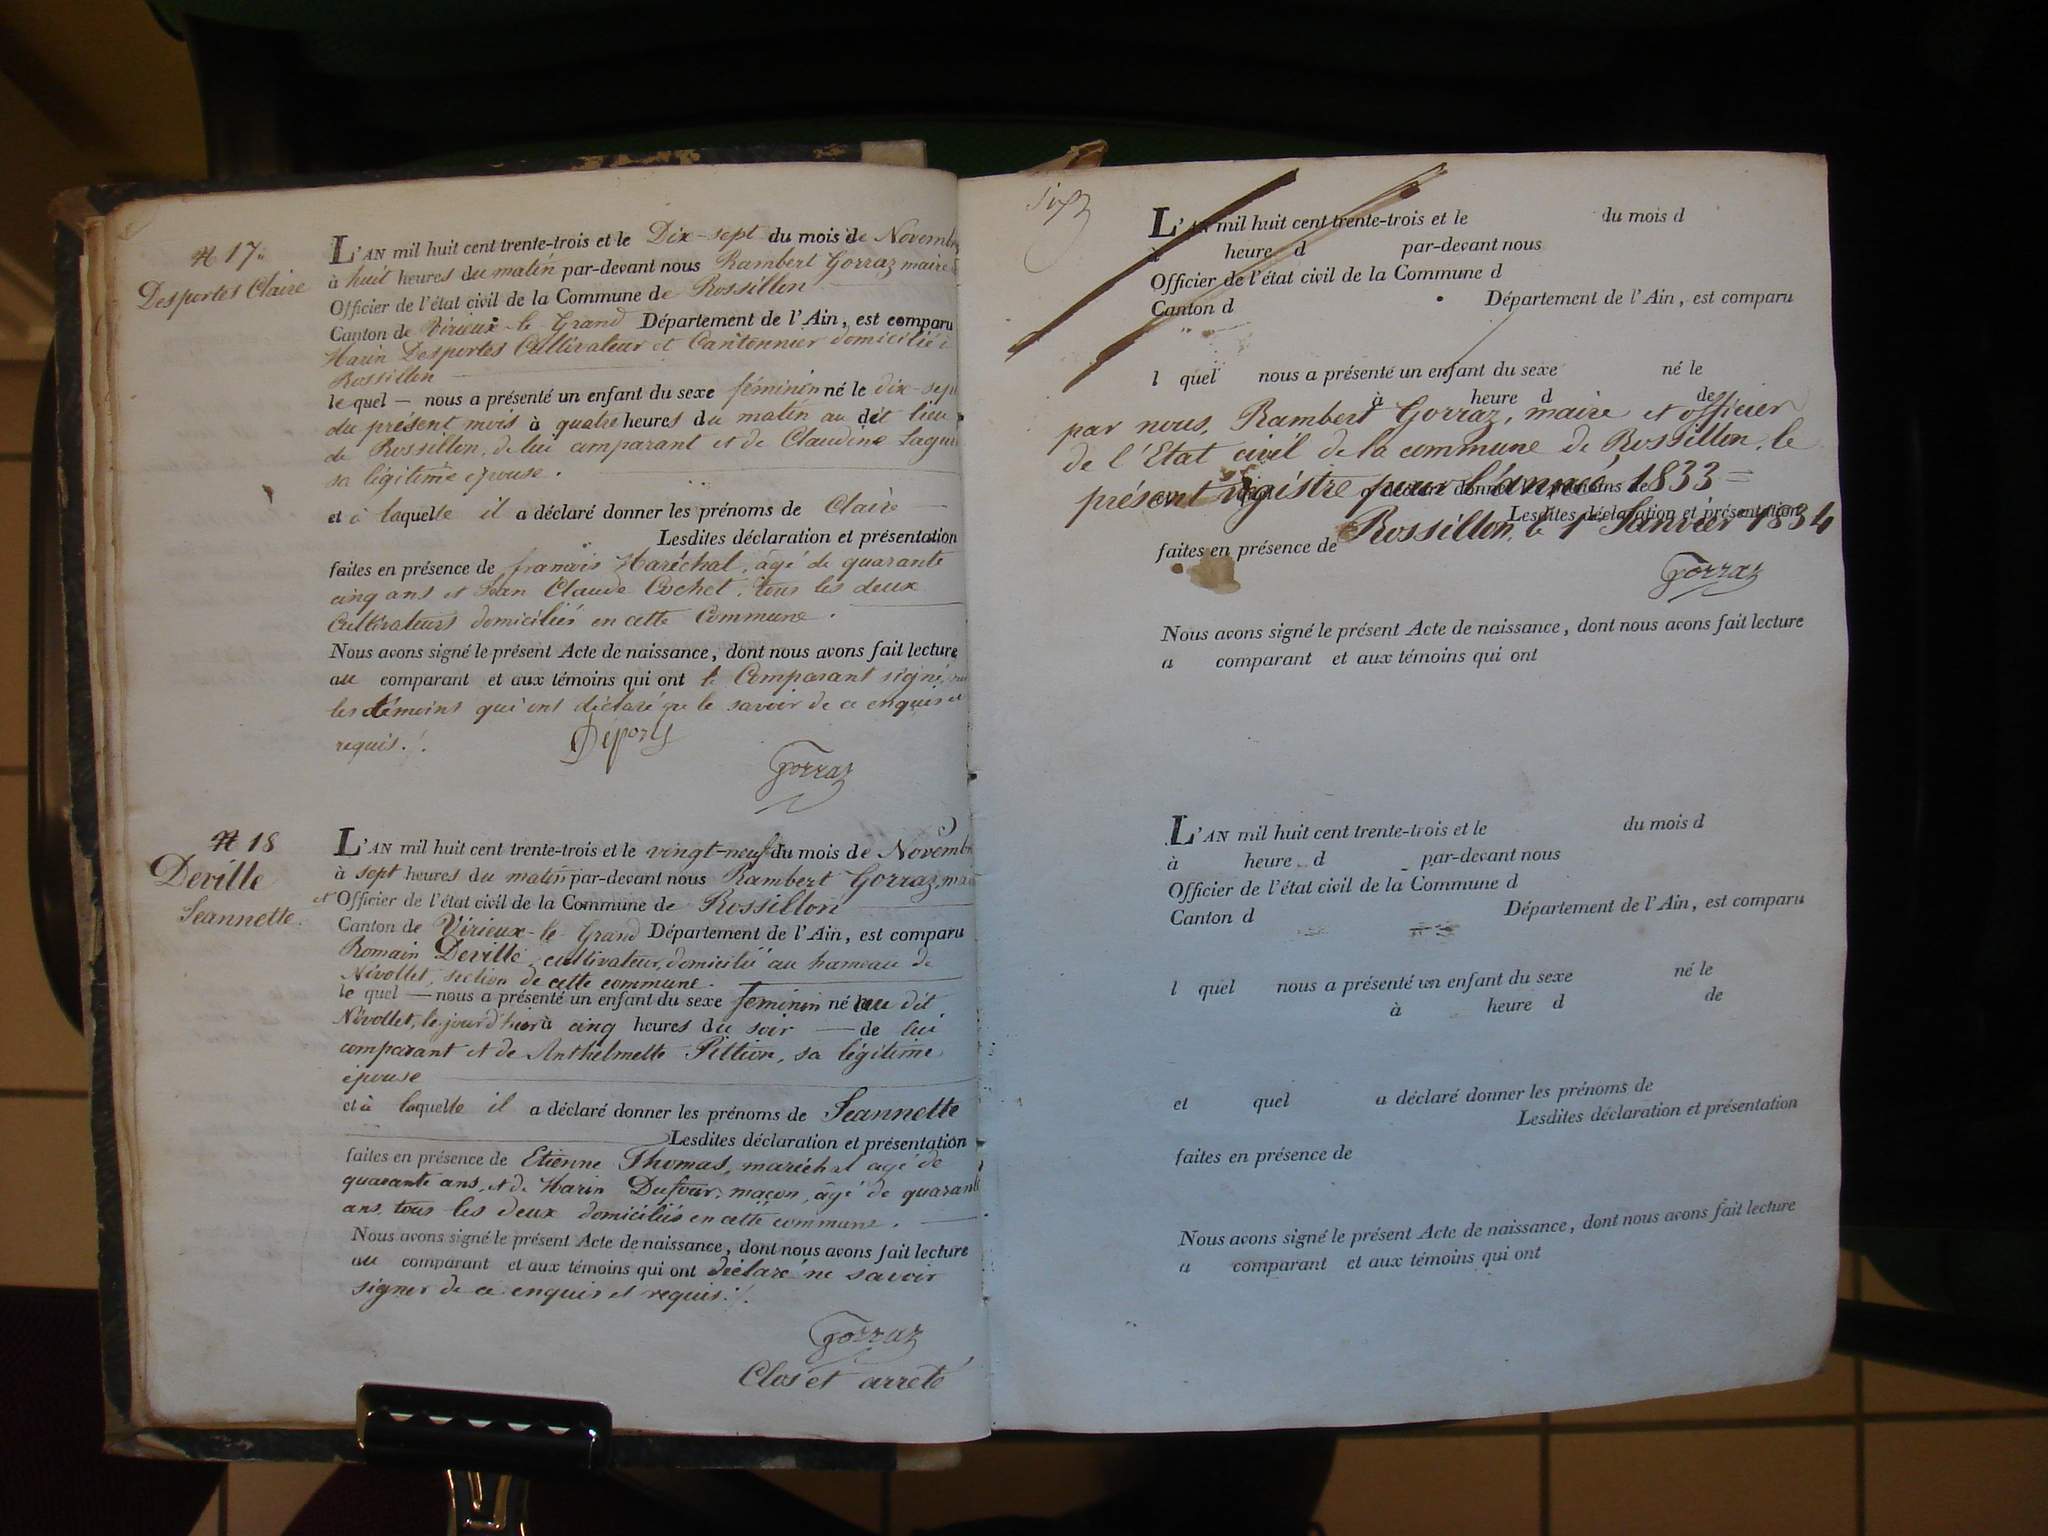 N 17.
Desportes Claire
L'AN mil huit cent trente-trois et le Dix-sept du mois de Novembre
à huit heures du matin par-devant nous Rambert Gorraz maire
Officier de l'état civil de la Commune de Rossillon
Canton de Virieux-le-Grand Département de l'Ain, est comparu
Marin Desportes Cultivateur et Cantonnier domicilié à
Rossillon
lequel — nous a présenté un enfant du sexe féminin né le dix-sept
du présent mois à quatre heures du matin au dit lieu
de Rossillon, de lui comparant et de Claudine
sa légitime épouse.
et à laquelle il a déclaré donner les prénoms de Claire
Lesdites déclaration et présentation
faites en présence de francois Maréchal, âgé de quarante
cinq ans et Jean Claude Cochet, tous les deux
Cultivateurs domiciliés en cette Commune.
Nous avons signé le présent Acte de naissance, dont nous avons fait lecture
au comparant et aux témoins qui ont le Comparant signé, non
les témoins qui ont déclaré ne le savoir de ce enquis et
requis ./.
Deports
Gorraz
N 18
Deville
Jeannette.
L'AN mil huit cent trente-trois et le vingt-neuf du mois de Novembre
à sept heures du matin par-devant nous Rambert Gorraz, maire
et Officier de l'état civil de la Commune de Rossillon
Canton de Virieux-le-Grand Département de l'Ain, est comparu
Romain Deville, cultivateur, domicilié au hameau de
Névollet, section de cette commune.
lequel — nous a présenté un enfant du sexe feminin né au dit
Névollet, le jour d'hier à cinq heures du soir — de lui
comparant et de Anthelmette Pittion, sa légitime
épouse
et à laquelle il a déclaré donner les prénoms de Jeannette
Lesdites déclaration et présentation
faites en présence de Etienne Thomas, maréchal agé de
quarante ans, et de Marin Dufour, maçon, âgé de quarante
ans, tous les deux domiciliés en cette commune.
Nous avons signé le présent Acte de naissance, dont nous avons fait lecture
au comparant et aux témoins qui ont déclaré ne savoir
signer de ce enquis et requis ./.
Gorraz
Clos et arreté
L'AN mil huit cent trente-trois et le du mois d
à heure d par-devant nous
Officier de l'état civil de la Commune d
Canton d Département de l'Ain, est comparu
l quel nous a présenté un enfant du sexe né le
à heure d de
par nous, Rambert Gorraz, maire et officier
de l'Etat civil de la commune de Rossillon, le
présent régistre pour l'année 1833 =
et quel a déclaré donner les prénoms de
Lesdites déclaration et présentation
Rossillon, le 1er Janvier 1834
faites en présence de
Gorraz
Nous avons signé le présent Acte de naissance, dont nous avons fait lecture
a comparant et aux témoins qui ont
L'AN mil huit cent trente-trois et le du mois d
à heure d par-devant nous
Officier de l'état civil de la Commune d
Canton d Département de l'Ain, est comparu
l quel nous a présenté un enfant du sexe né le
à heure d de
et quel a déclaré donner les prénoms de
Lesdites déclaration et présentation
faites en présence de
Nous avons signé le présent Acte de naissance, dont nous avons fait lecture
a comparant et aux témoins qui ont